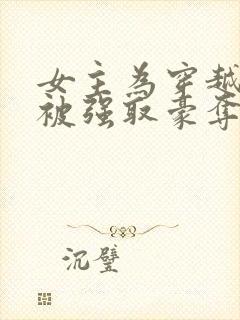 女主為穿越
被强取豪奪
沉璧